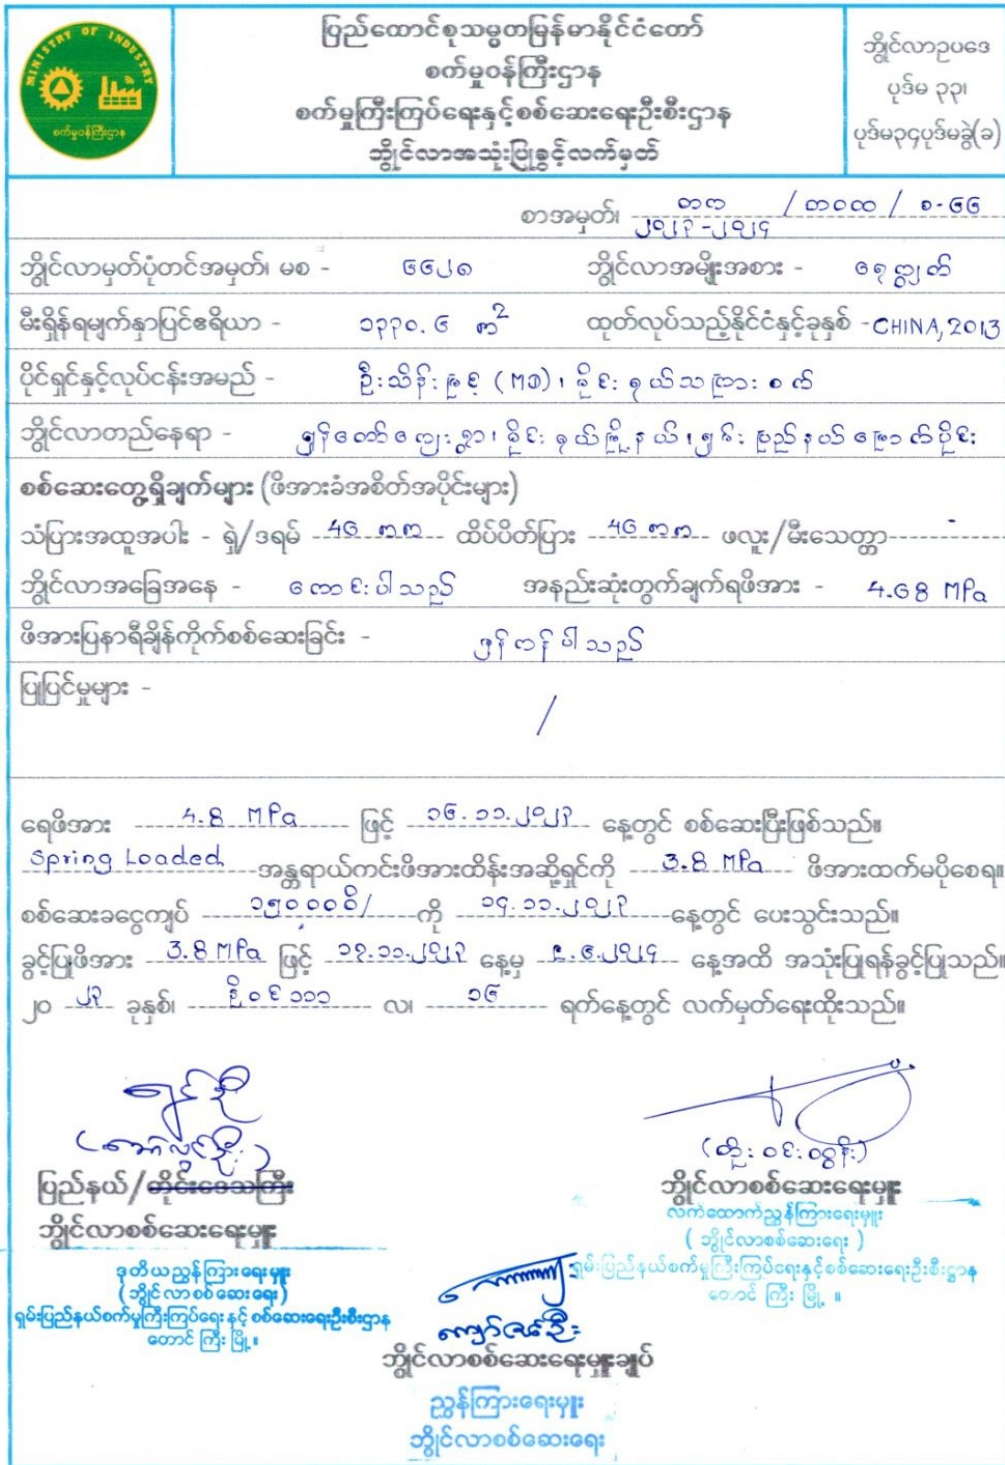 MINISTRY OF INDUSTRY
စက်မှုဝန်ကြီးဌာန
ပြည်ထောင်စုသမ္မတမြန်မာနိုင်ငံတော်
စက်မှုဝန်ကြီးဌာန
စက်မှုကြီးကြပ်ရေးနှင့်စစ်ဆေးရေးဦးစီးဌာန
ဘွိုင်လာအသုံးပြုခွင့်လက်မှတ်
ဘွိုင်လာဥပဒေ
ပုဒ်မ ၃၃၊
ပုဒ်မ၃၄ပုဒ်မခွဲ(ခ)
စာအမှတ်၊ တက / ကလထ / စ-၆၆
၂၀၂၃-၂၀၂၄
ဘွိုင်လာမှတ်ပုံတင်အမှတ်၊ မစ - ၆၆၂၈ ဘွိုင်လာအမျိုးအစား - ရေကျွတ်
မီးရှိန်ရမျက်နှာပြင်ဧရိယာ - ၁၃၃၀.၆ m² ထုတ်လုပ်သည့်နိုင်ငံနှင့်ခုနှစ် - CHINA, 2013
ပိုင်ရှင်နှင့်လုပ်ငန်းအမည် - ဦးသိန်းမြင့် (MD)၊ မိုင်းရယ်သကြားစက်
ဘွိုင်လာတည်နေရာ - မျှန်တော်ကျေးရွာ၊ မိုင်းရယ်မြို့နယ်၊ ရှမ်းပြည်နယ်မြောက်ပိုင်း
စစ်ဆေးတွေ့ရှိချက်များ (ဖိအားခံအစိတ်အပိုင်းများ)
သံပြားအထူအပါး - ရှဲ/ဒရမ် 46 mm ထိပ်ပိတ်ပြား 46 mm ဖလူး/မီးသေတ္တာ -
ဘွိုင်လာအခြေအနေ - ကောင်းပါသည် အနည်းဆုံးတွက်ချက်ရဖိအား - 4.68 MPa
ဖိအားပြနာရီချိန်ကိုက်စစ်ဆေးခြင်း - မှန်ကန်ပါသည်
ပြုပြင်မှုများ -
/
ရေဖိအား 4.8 MPa ဖြင့် ၁၆.၁၁.၂၀၂၃ နေ့တွင် စစ်ဆေးပြီးဖြစ်သည်။
Spring Loaded အန္တရာယ်ကင်းဖိအားထိန်းအဆို့ရှင်ကို 3.8 MPa ဖိအားထက်မပိုစေရ။
စစ်ဆေးခငွေကျပ် ၁၅၀,၀၀၀ိ/ ကို ၁၄.၁၁.၂၀၂၃ နေ့တွင် ပေးသွင်းသည်။
ခွင့်ပြုဖိအား 3.8 MPa ဖြင့် ၁၇.၁၁.၂၀၂၃ နေ့မှ ၉.၆.၂၀၂၄ နေ့အထိ အသုံးပြုရန်ခွင့်ပြုသည်။
၂၀ ၂၃ ခုနှစ်၊ နိုဝင်ဘာ လ၊ ၁၆ ရက်နေ့တွင် လက်မှတ်ရေးထိုးသည်။
(တိုးဝင်းဝဏ္ဏန်း)
ပြည်နယ်/တိုင်းဒေသကြီး
ဘွိုင်လာစစ်ဆေးရေးမှူး
ဒုတိယညွှန်ကြားရေးမှူး
(ဘွိုင်လာစစ်ဆေးရေး)
ရှမ်းပြည်နယ်စက်မှုကြီးကြပ်ရေးနှင့် စစ်ဆေးရေးဦးစီးဌာန
တောင်ကြီးမြို့။
ဘွိုင်လာစစ်ဆေးရေးမှူး
လက်ထောက်ညွှန်ကြားရေးမှူး
( ဘွိုင်လာစစ်ဆေးရေး )
ရှမ်းပြည်နယ်စက်မှုကြီးကြပ်ရေးနှင့်စစ်ဆေးရေးဦးစီးဌာန
တောင်ကြီးမြို့ ။
ကျော်ဇင်ဦး
ဘွိုင်လာစစ်ဆေးရေးမှူးချုပ်
ညွှန်ကြားရေးမှူး
ဘွိုင်လာစစ်ဆေးရေး